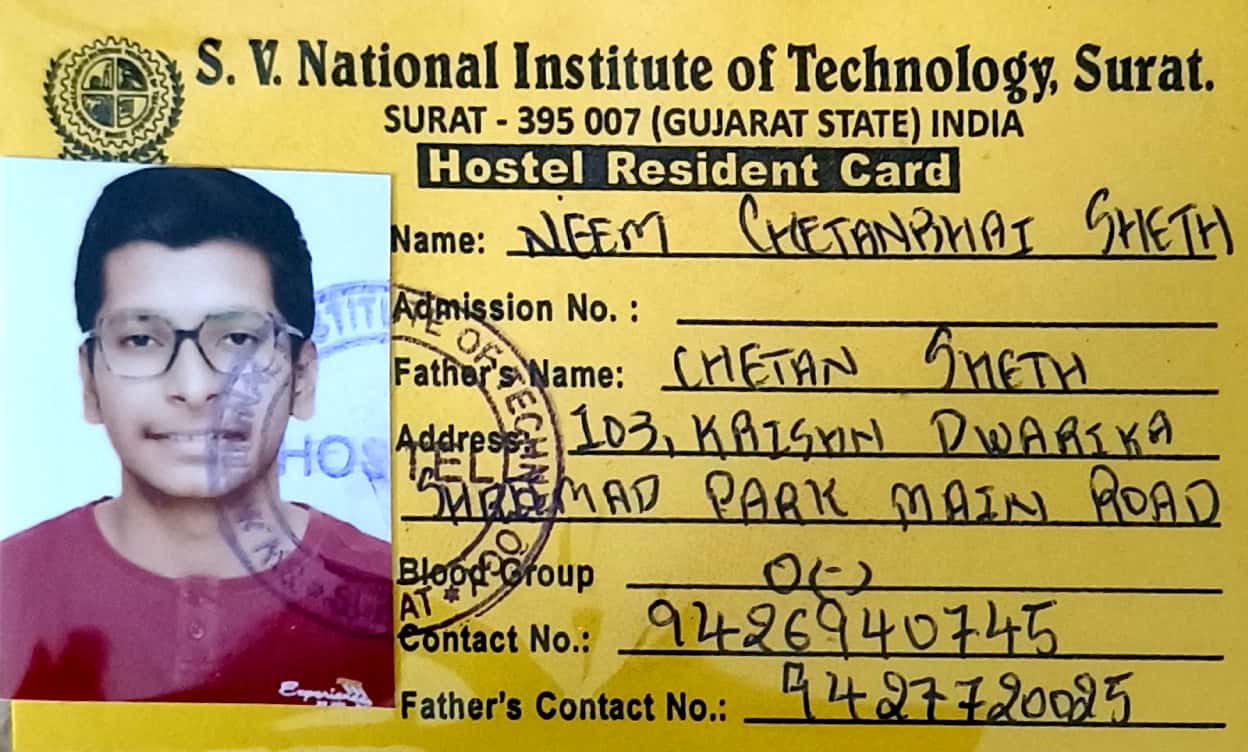 S. V. National Institute of Technology, Surat.
SURAT - 395 007 (GUJARAT STATE) INDIA
Hostel Resident Card
Name: NEEM CHETANBHAI SHETH
Admission No. :
Father's Name: CHETAN SHETH
Address: 103, KRISHN DWARIKA
SHREEMAD PARK MAIN ROAD
Blood Group O(-)
Contact No.: 9426940745
Father's Contact No.: 9427720025
STITUTE OF TECHN
HOSTEL
AT *
Experience